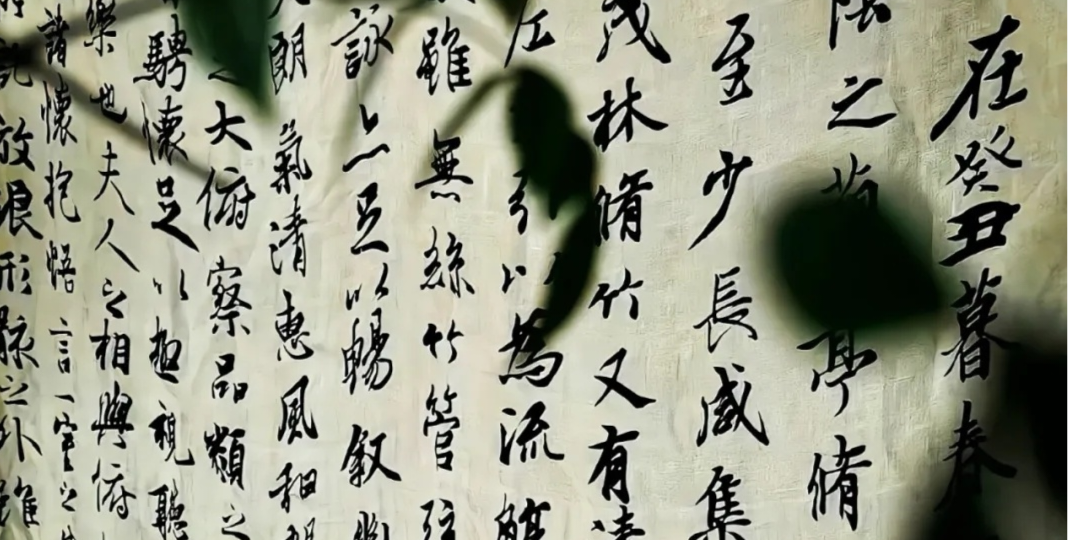 在癸丑暮春
陰之蘭亭脩
至少長咸集
茂林脩竹又有清
左引以為流觴
雖無絲竹管弦
詠一足以暢叙幽
朗氣清惠風和暢
大俯察品類之
騁懷足以極視聽
樂也夫人之相與俯
諸懷抱悟言一室之
放浪形骸之外雖